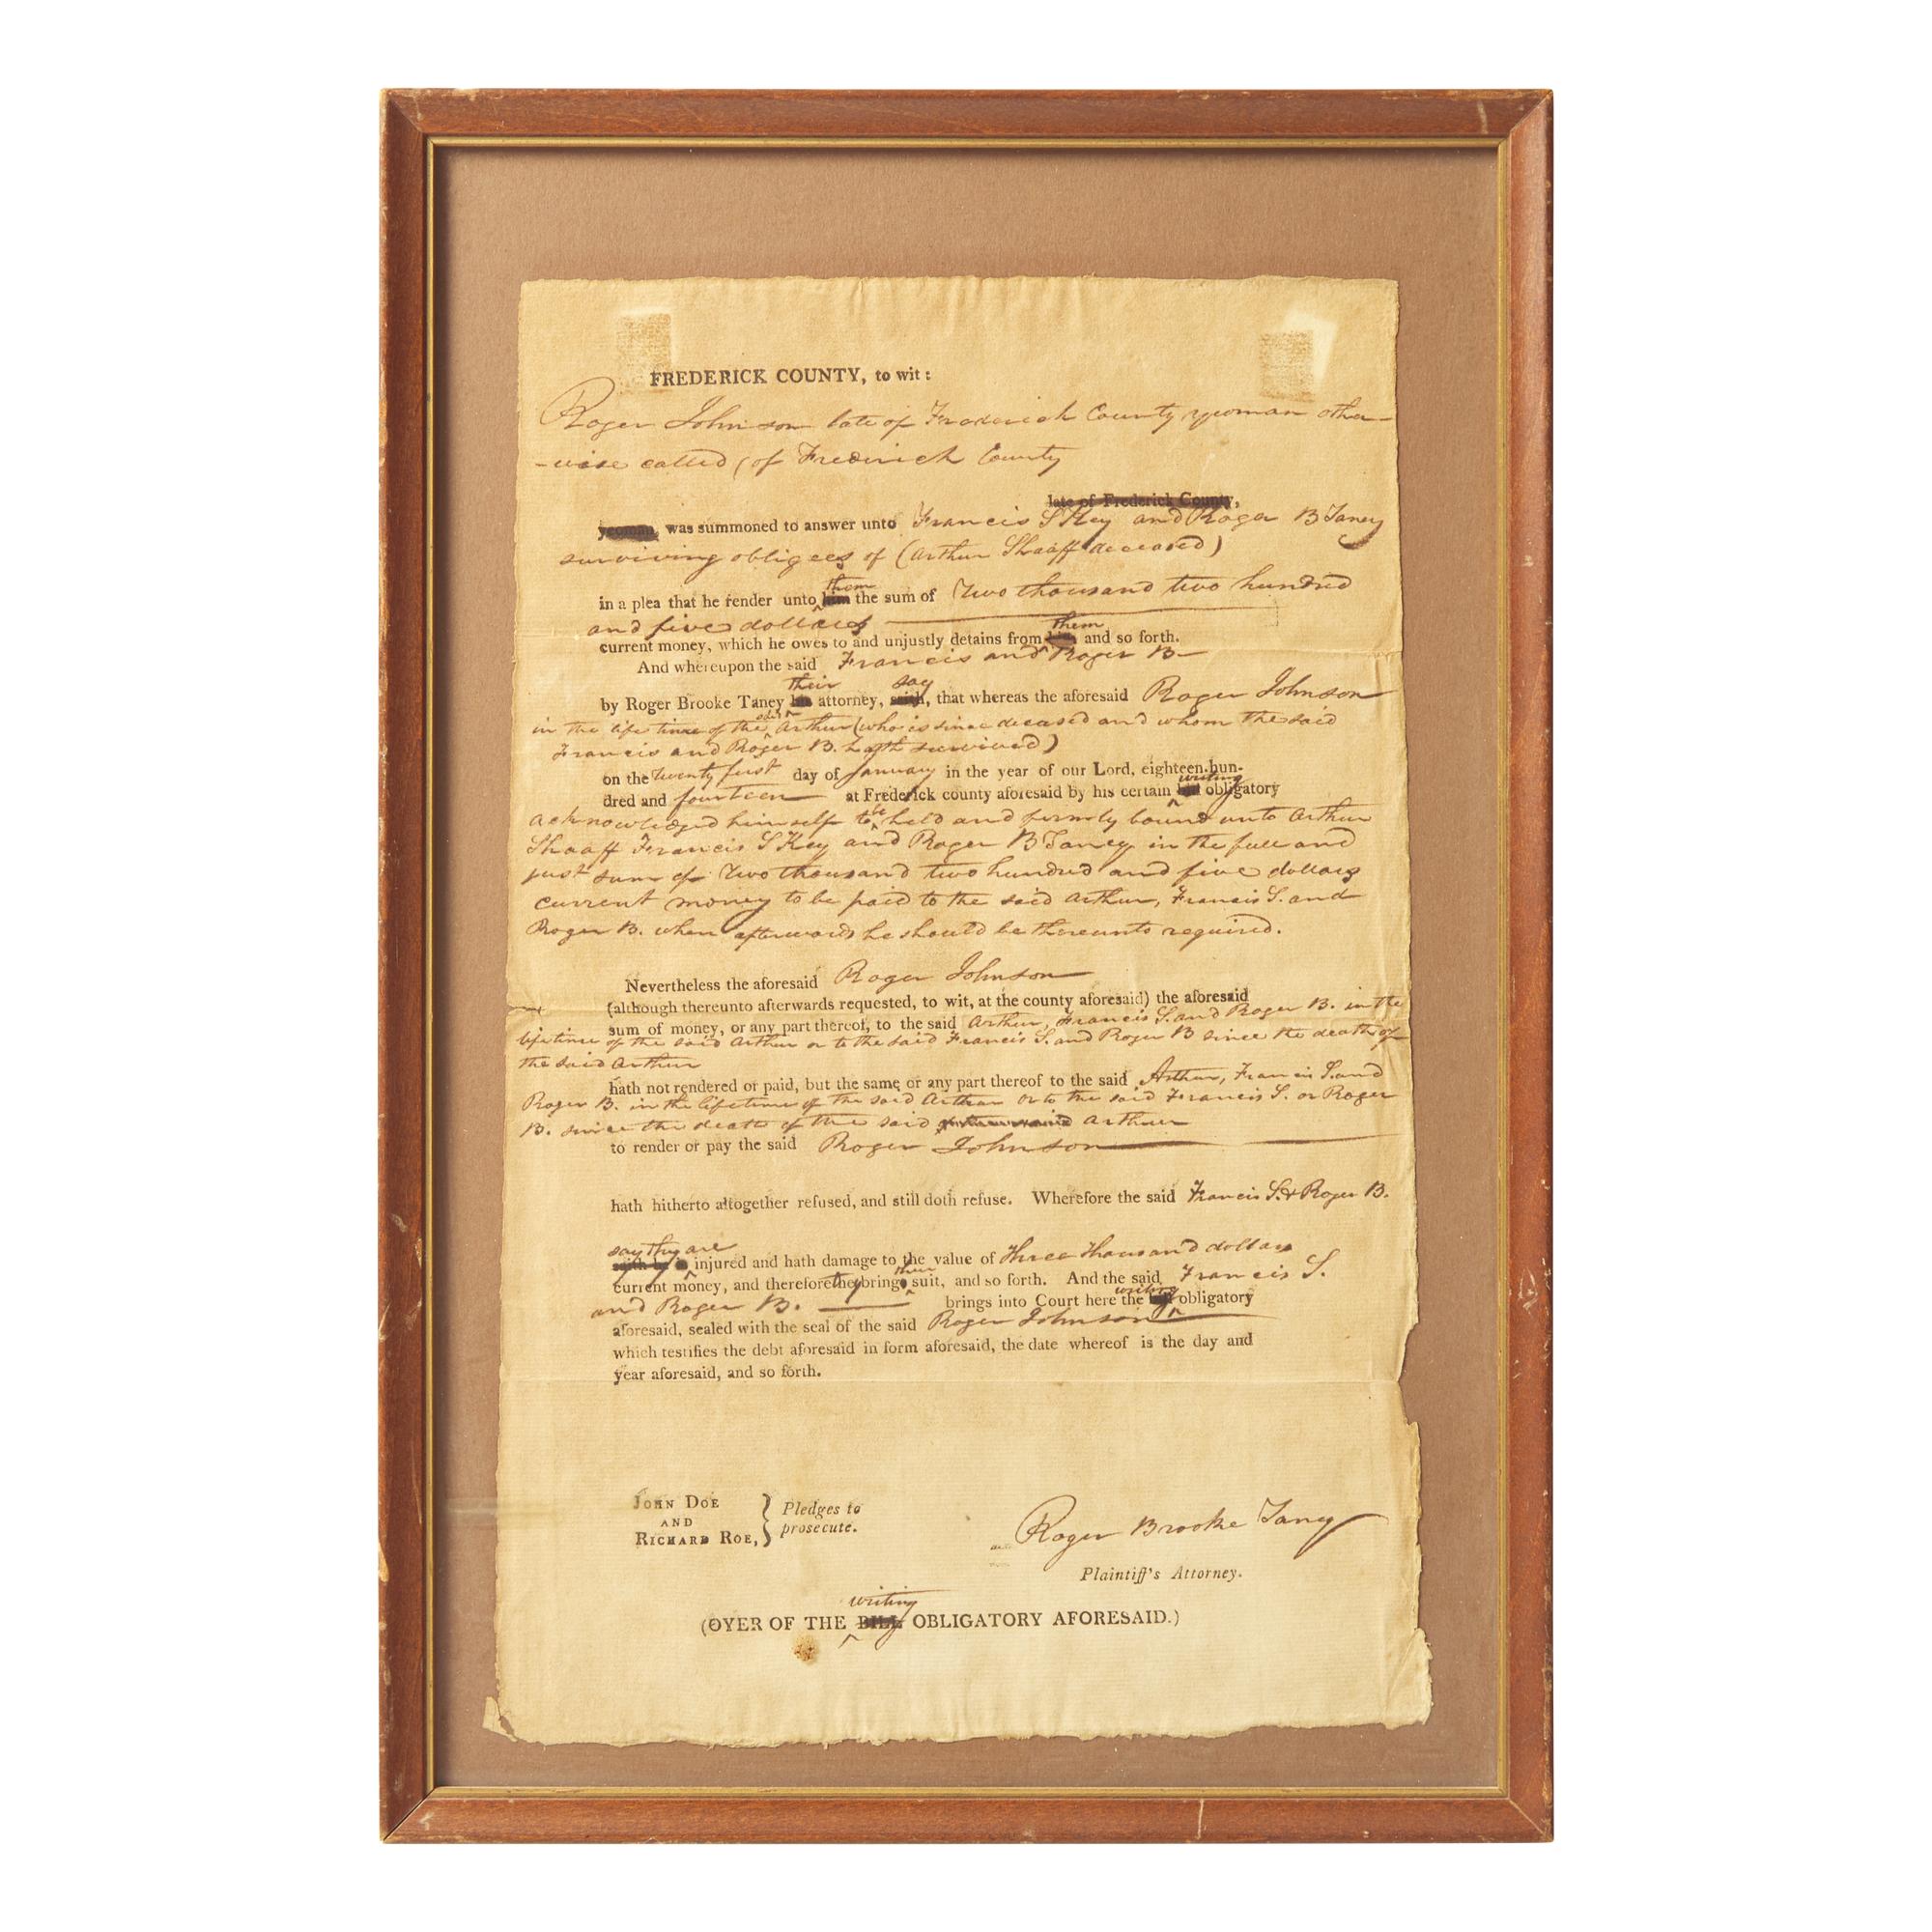 FREDERICK COUNTY, to wit:
Roger Johnson late of Frederick County yeoman other-
-wise called (of Frederick County
late of Frederick County,
yeoman, was summoned to answer unto Francis S Key and Roger B Taney
surviving obligees of (Arthur Shaaff deceased)
them
in a plea that he render unto him the sum of Two thousand two hundred
and five dollars
them
current money, which he owes to and unjustly detains from him and so forth.
And whereupon the said Francis and Roger B
their say
by Roger Brooke Taney his attorney, saith, that whereas the aforesaid Roger Johnson
in the life time of the said Arthur (who is since deceased and whom the said
Francis and Roger B. hath survived)
on the twenty first day of January in the year of our Lord, eighteen hun-
writing
dred and fourteen at Frederick county aforesaid by his certain bill obligatory
acknowledged himself to be held and firmly bound unto Arthur
Shaaff Francis S Key and Roger B Taney in the full and
just sum of Two thousand two hundred and five dollars
current money to be paid to the said Arthur, Francis S. and
Roger B. when afterwards he should be thereunto required.
Nevertheless the aforesaid Roger Johnson
(although thereunto afterwards requested, to wit, at the county aforesaid) the aforesaid
sum of money, or any part thereof, to the said Arthur, Francis S. and Roger B. in the
lifetime of the said Arthur or to the said Francis S. and Roger B since the death of
the said Arthur
hath not rendered or paid, but the same or any part thereof to the said Arthur, Francis S. and
Roger B. in the lifetime of the said Arthur or to the said Francis S. or Roger
B. since the death of the said Arthur
to render or pay the said Roger Johnson
hath hitherto altogether refused, and still doth refuse. Wherefore the said Francis S. & Roger B.
say they are
saith he is injured and hath damage to the value of three thousand dollars
current money, and therefore they brings their suit, and so forth. And the said Francis S.
writing
and Roger B. brings into Court here the bill obligatory
aforesaid, sealed with the seal of the said Roger Johnson
which testifies the debt aforesaid in form aforesaid, the date whereof is the day and
year aforesaid, and so forth.
JOHN DOE
AND
RICHARD ROE,
Pledges to
prosecute.
Roger Brooke Taney
Plaintiff's Attorney.
writing
(OYER OF THE BILL OBLIGATORY AFORESAID.)